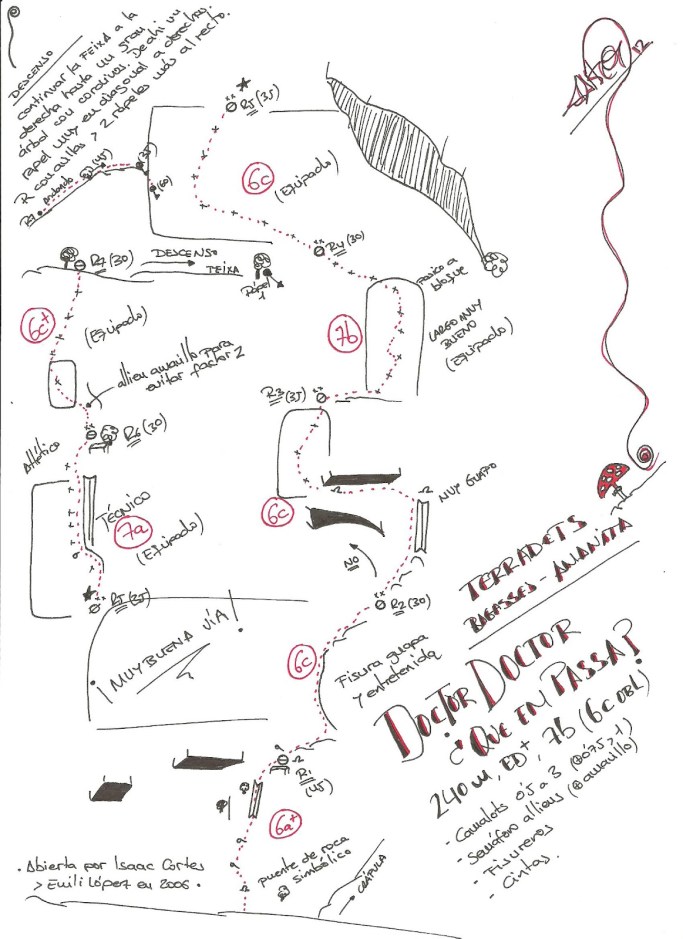 DESCENSO
continuar la FEIXA a la
derecha hasta un gran
árbol con cordinos. De ahí un
rapel muy en diagonal a derecha.
R con anillas > 2 rápeles más al recto.
R7
andando
(45)
(35)
(60)
R5 (35)
6c
(Equipado)
R4 (30)
R7 (30)
DESCENSO
FEIXA
Rápel
1
6c+
(Equipado)
alien amarillo para
evitar factor 2
pasico a
bloque
7b
LARGO MUY
BUENO
(Equipado)
R3 (35)
R6 (30)
Atlético
TÉCNICO
7a
(Equipado)
R5 (35)
6c
MUY GUAPO
NO
R2 (30)
¡MUY BUENA VÍA!
6c
Fisura guapa
y entretenida
R1
(45)
6a+
puente de roca
simbólico
→ CRÁPULA
· Abierta por Isaac Cortes
> Emili López en 2006 ·
12
TERRADETS
BAGASSES - AMANITA
DOCTOR DOCTOR
¿QUE EM PASSA?
240 m, ED+, 7b (6c OBL)
- Camalots 0'5 a 3 (⊕0'75 > 1)
- Semáforo aliens (⊕amarillo)
- Fisureros
- Cintas.